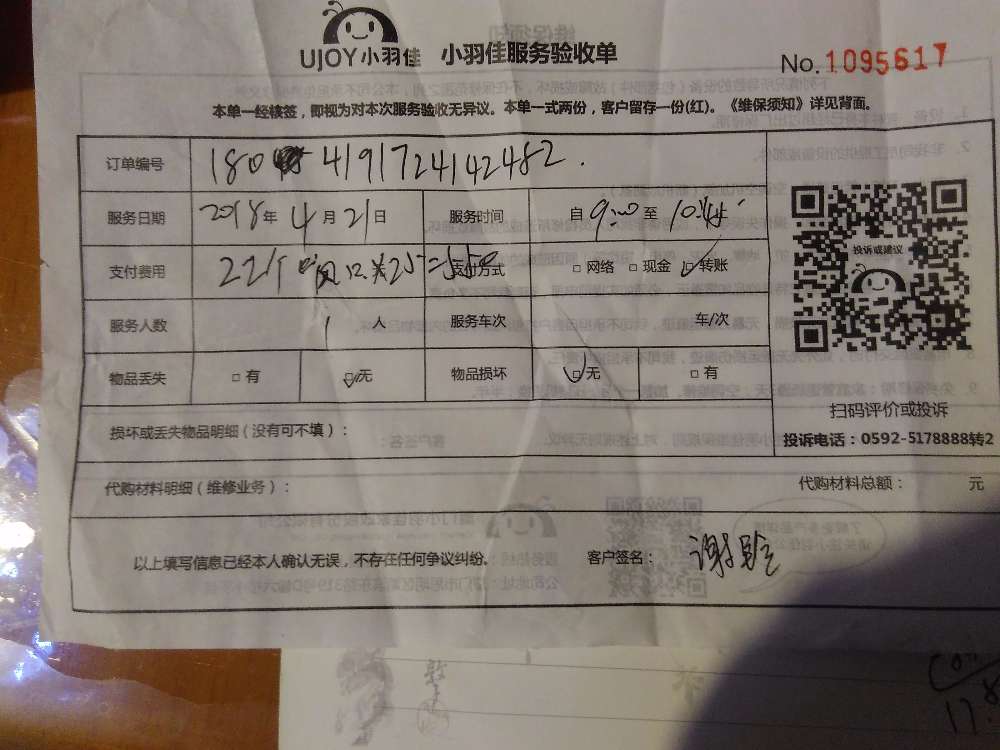 UJOY小羽佳 小羽佳服务验收单
No.1095617
本单一经核签，即视为对本次服务验收无异议。本单一式两份，客户留存一份(红)。《维保须知》详见背面。
订单编号 180 419172414 2482.
服务日期 2018年4月21日 服务时间 自9:00至10:
支付费用 22个风口×25=550 支付方式 □网络 □现金 ☑转账
服务人数 1人 服务车次 车/次
物品丢失 □有 ☑无 物品损坏 ☑无 □有
投诉或建议
扫码评价或投诉
投诉电话：0592-5178888转2
损坏或丢失物品明细（没有可不填）：
代购材料明细（维修业务）： 代购材料总额： 元
以上填写信息已经本人确认无误，不存在任何争议纠纷。 客户签名： 谢